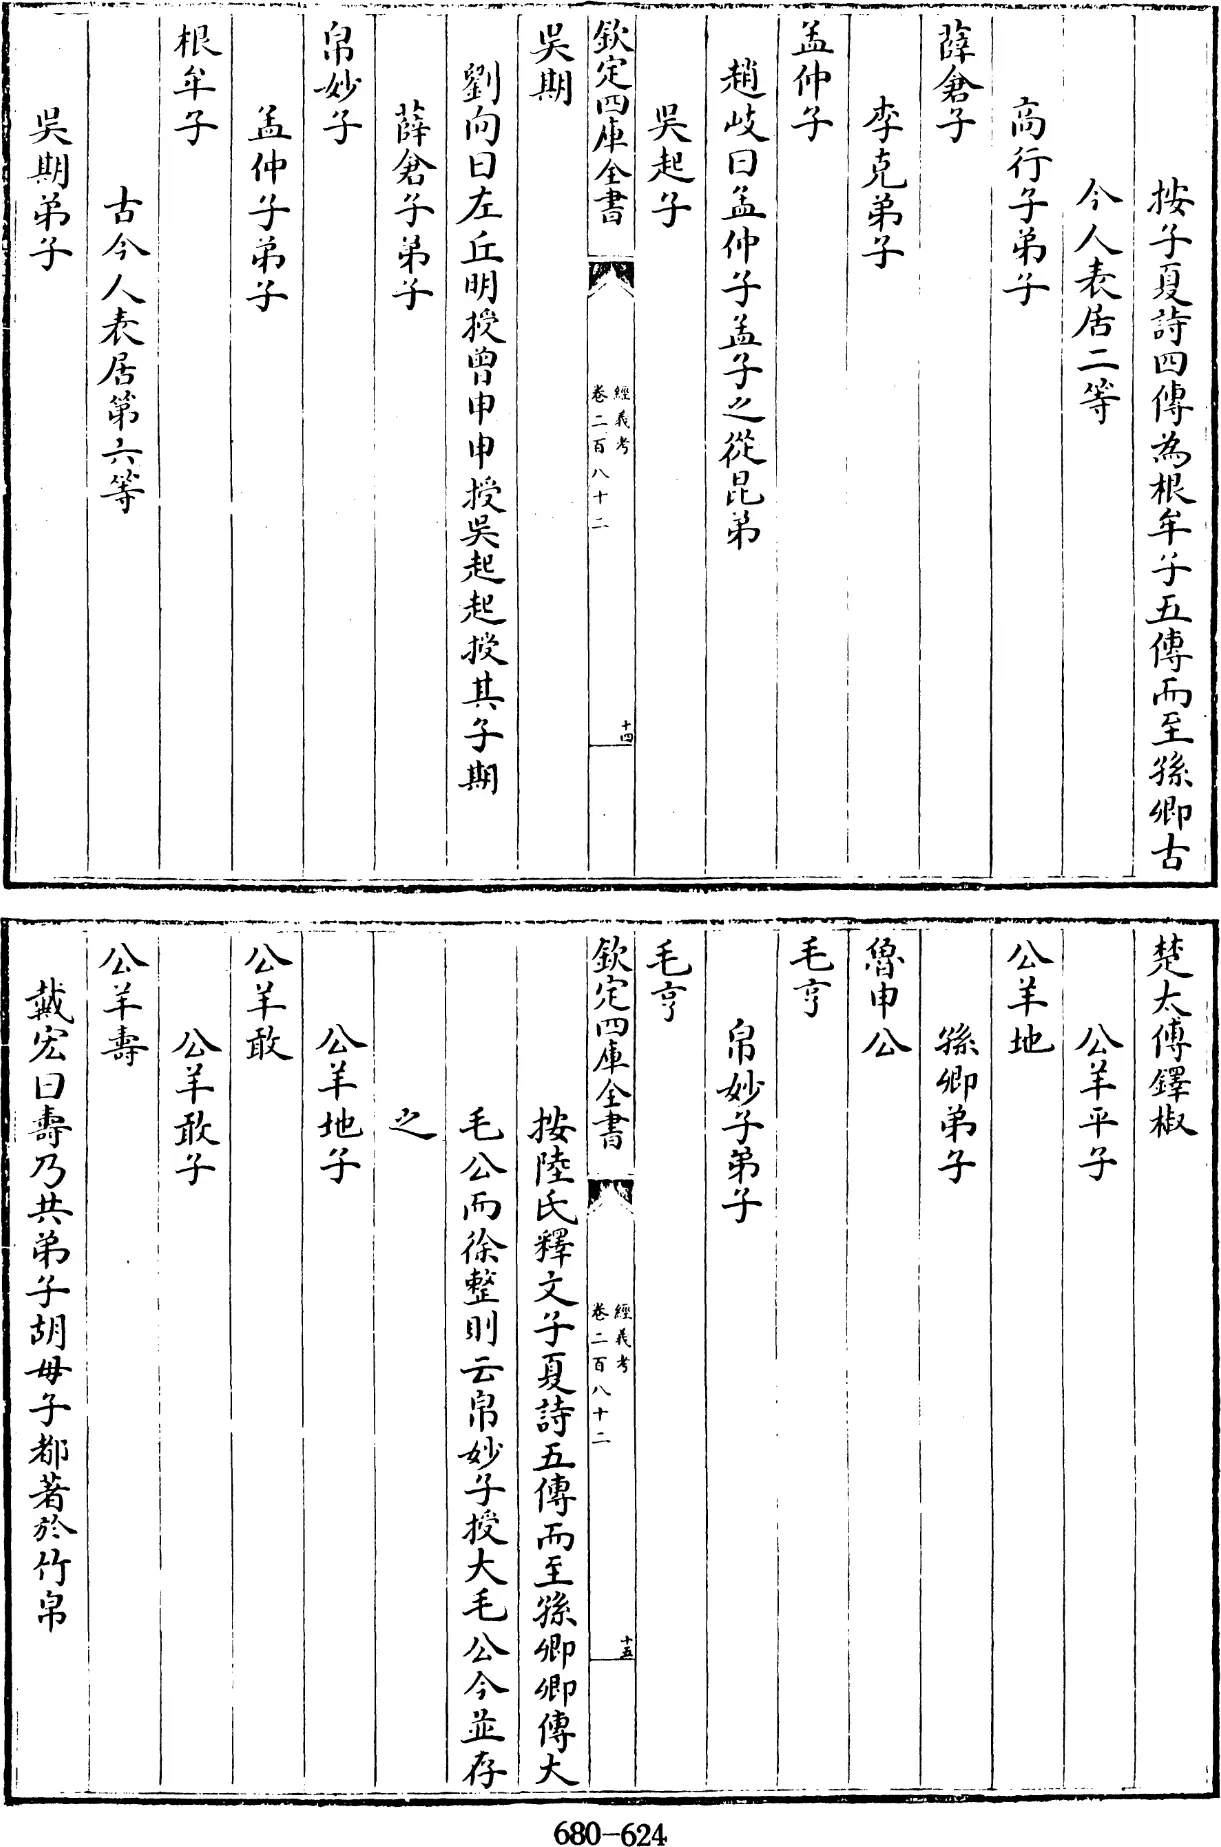 按子夏詩四傳為根牟子五傳而至孫卿古
今人表居二等
高行子弟子
薛倉子
李克弟子
孟仲子
趙岐曰孟仲子孟子之從昆弟
吳起子
欽定四庫全書
經義考
卷二百八十二
十四
吳期
劉向曰左丘明授曽申申授吳起起授其子期
薛倉子弟子
帛妙子
孟仲子弟子
根牟子
古今人表居第六等
吳期弟子
楚太傅鐸椒
公羊平子
公羊地
孫卿弟子
魯申公
毛亨
帛妙子弟子
毛亨
欽定四庫全書
經義考
卷二百八十二
十五
按陸氏釋文子夏詩五傳而至孫卿卿傳大
毛公而徐整則云帛妙子授大毛公今並存
之
公羊地子
公羊敢
公羊敢子
公羊壽
戴宏曰壽乃共弟子胡毋子都著於竹帛
680-624